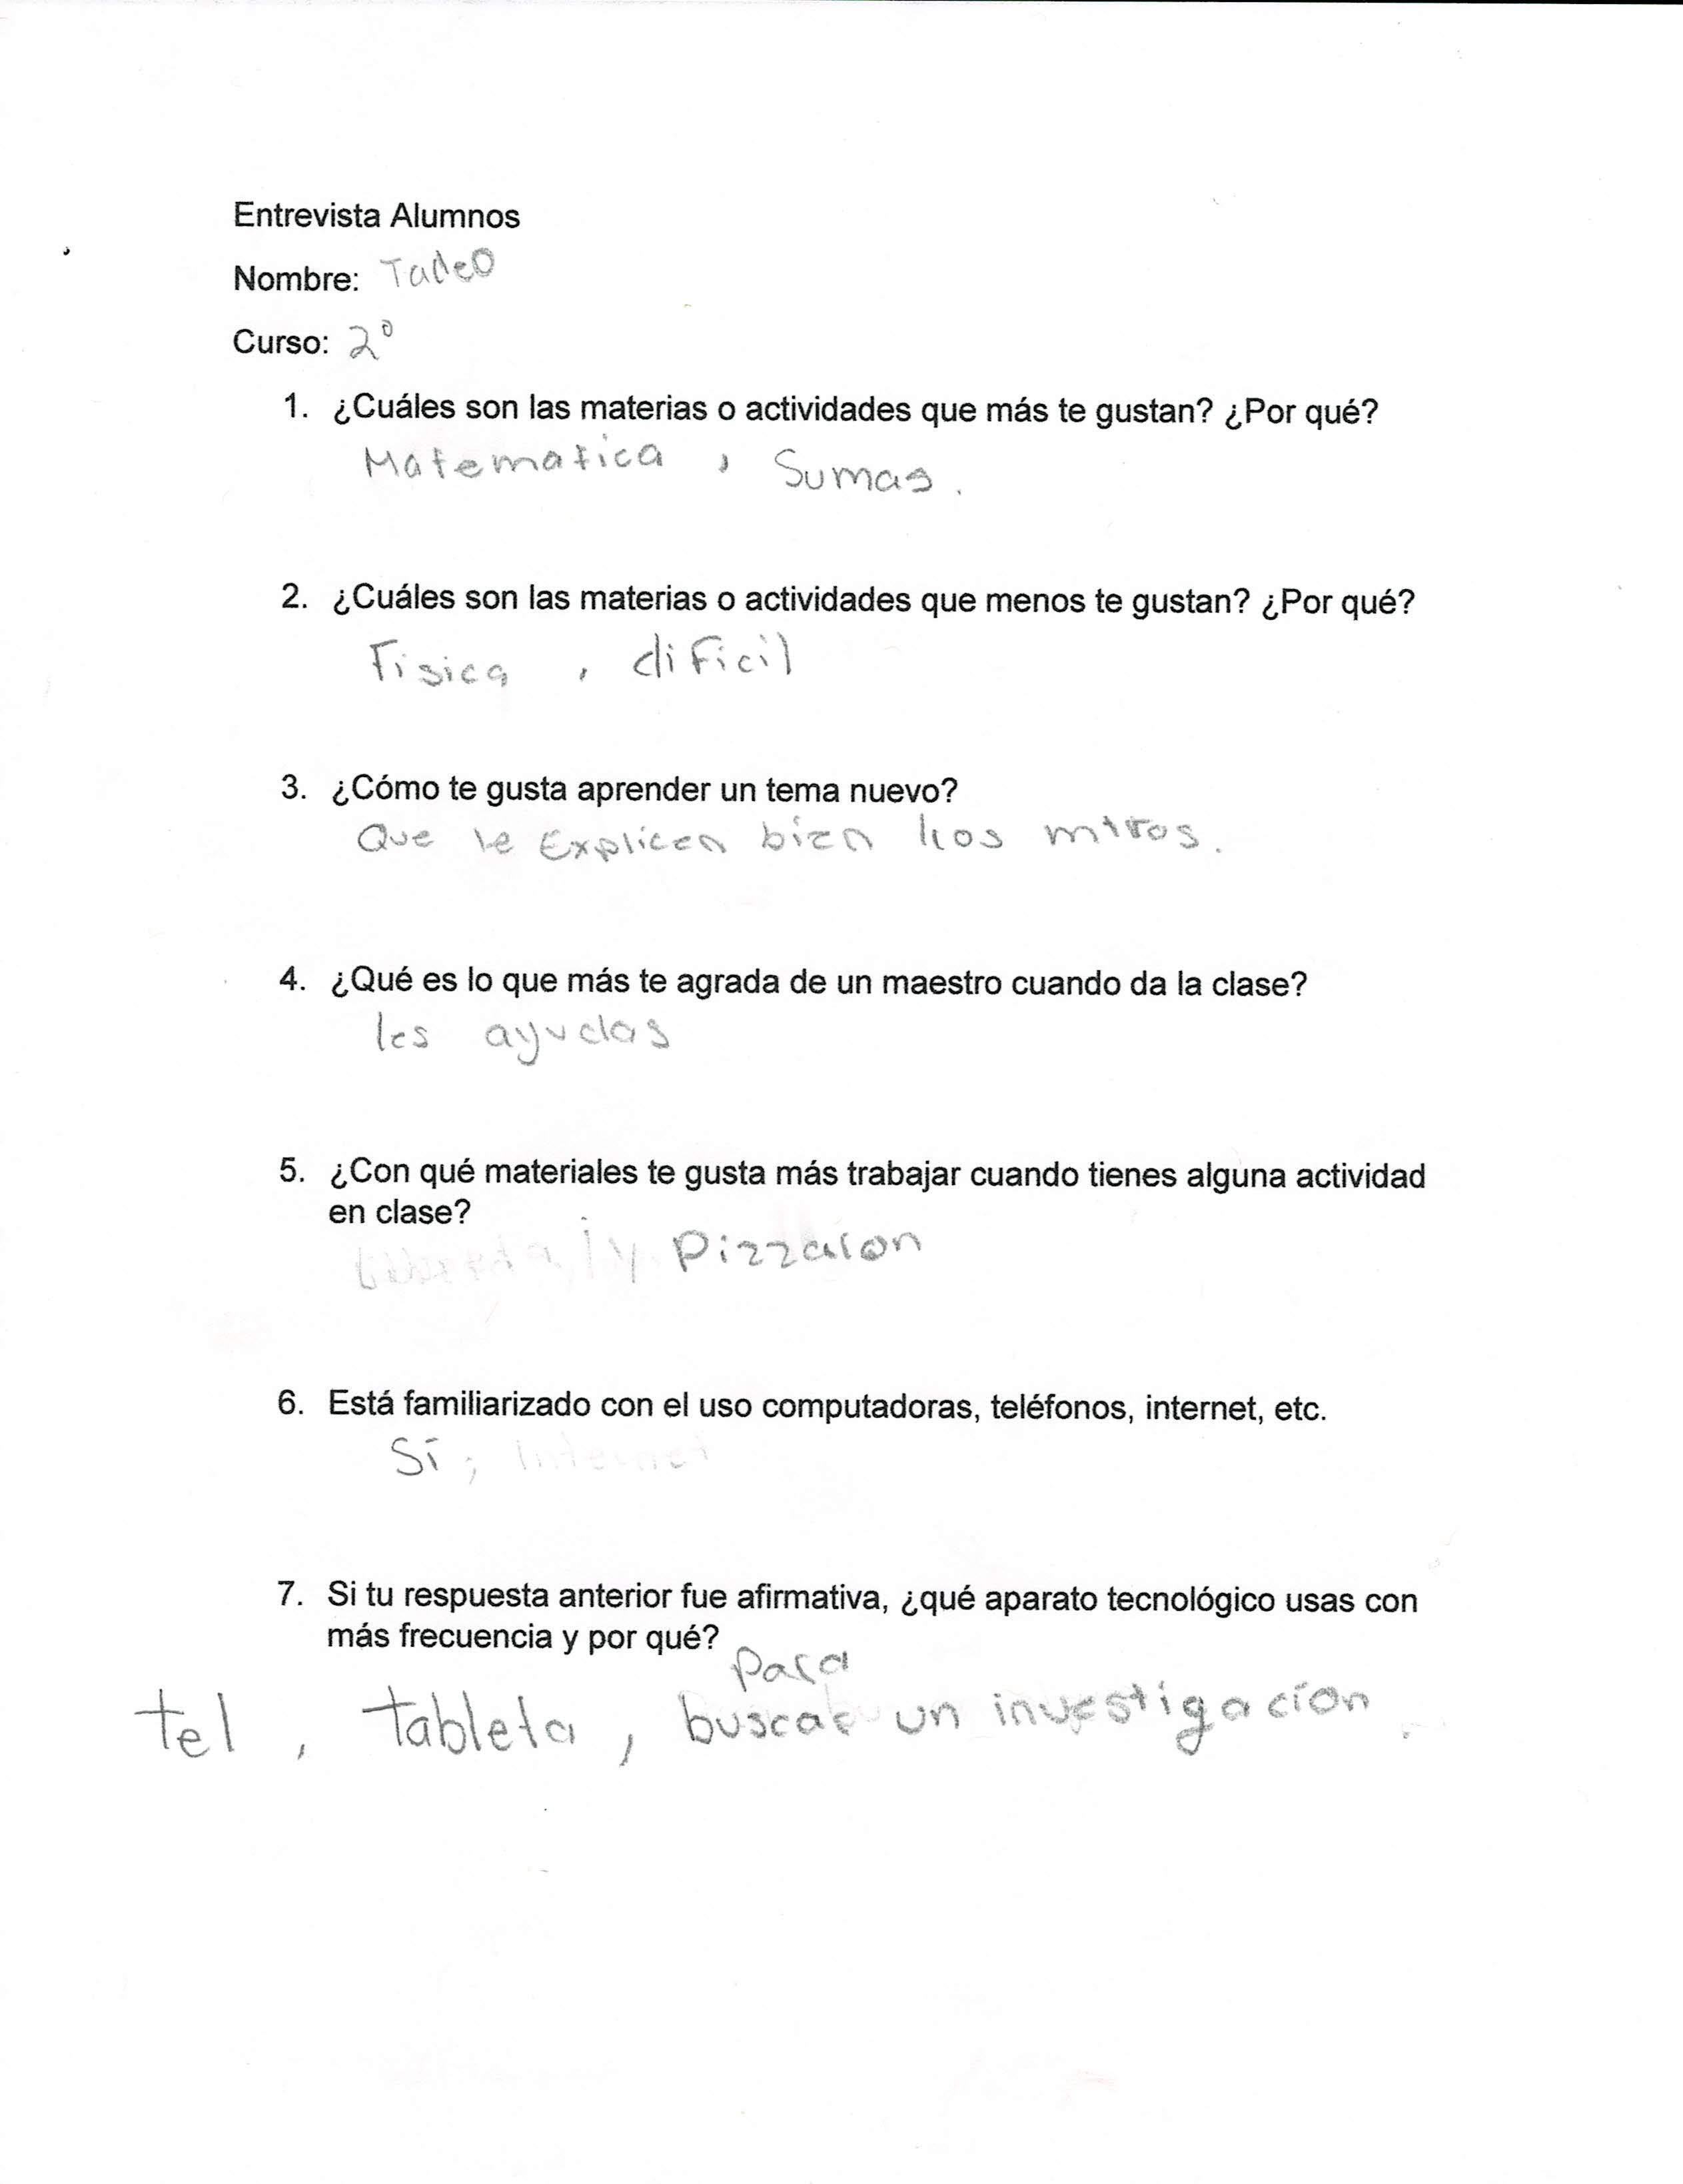 Entrevista Alumnos
Nombre: Tadeo
Curso: 2º
1. ¿Cuáles son las materias o actividades que más te gustan? ¿Por qué?
Matematica , Sumas.
2. ¿Cuáles son las materias o actividades que menos te gustan? ¿Por qué?
Fisica , dificil
3. ¿Cómo te gusta aprender un tema nuevo?
Que le Explicen bien los
4. ¿Qué es lo que más te agrada de un maestro cuando da la clase?
les ayudas
5. ¿Con qué materiales te gusta más trabajar cuando tienes alguna actividad
en clase?
y Pizzaron
6. Está familiarizado con el uso computadoras, teléfonos, internet, etc.
Sí ; Internet
7. Si tu respuesta anterior fue afirmativa, ¿qué aparato tecnológico usas con
más frecuencia y por qué?
Para
tel , tableta , buscar un investigacíon .